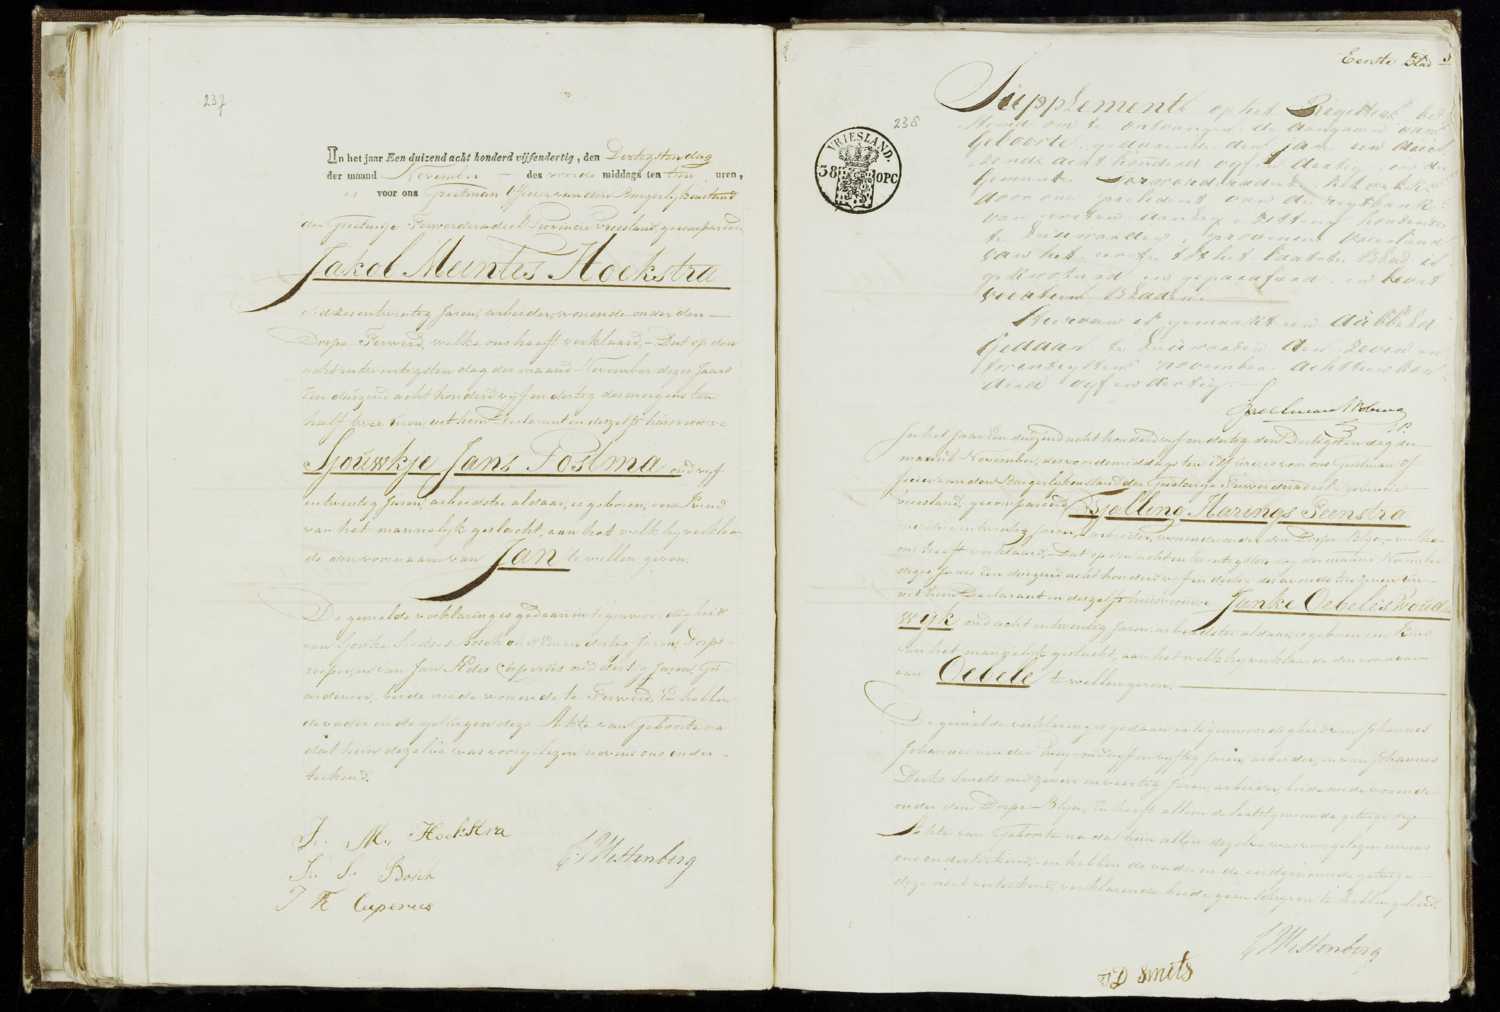 237
In het jaar Een duizend acht honderd vijfendertig, den Dertigsten dag
der maand November des voorde middags ten tien uren,
is voor ons Grietman Officier van den Burgerlijken Stand
der Grietenije Ferwerderadeel Provincie Vriesland, gecompareerd
Jakob Meintes Hoekstra
oud zesentwintig Jaren, arbeider, wonende onder den
Dorpe Ferwerd, welke ons heeft verklaard, Dat op den
acht en twentigsten dag der maand November dezes Jaars
Een duizend acht honderd vijf en dertig des morgens ten
half twee uren, uit hem Declarant en deszelfs huisvrouw
Sjoukje Jans Postma oud vijf
entwintig Jaren, arbeidster aldaar, is geboren, een Kind
van het mannelijk geslacht, aan het welk hij verklaar
de den voornaam van Jan te willen geven.
De gemelde verklaring is gedaan in tegenwoordigheid
van Sjoeke Bosch oud Jaren, Dorps
en van Jan Cuperus oud dertig Jaren,
beide mede wonende te Ferwerd, En hebben
de vader en de getuigen deze Akte van Geboorte na
dat hun dezelve was voorgelezen nevens ons onder-
tekend.
J. M. Hoekstra
S. Bosch
Cuperus
Westenberg
Eerste Blad
238
VRIESLAND.
38 OPC
Supplement op het Register be
stemd om te ontvangen de aangaven van
Geboorte, gedurende den jare een duizend
acht honderd vijf en dertig in de
Gemeente Ferwerderadeel, het welk
door ons president van de regtbank
van eersten aanleg, zitting houdende
te Leeuwarden, provincie Vriesland
van het eerste tot het laatste Blad is
gekwoteerd en geparafeerd en bevat
Bladen
Hiervan is gemaakt een dubbeld
Gedaan te Leeuwarden den zeven en
twintigsten november achttien hon
derd vijf en dertig
In het Jaar Een duizend acht honderd vijf en dertig den Dertigsten dag der
maand November, des voordemiddags ten elf uren is voor ons Grietman Of
ficier van den Burgerlijken Stand der Grietenije Ferwerderadeel provincie
Vriesland, gecompareerd Tjalling Harings Feenstra
entwintig Jaren, arbeider, wonende onder den Dorpe Blija, welke
ons heeft verklaard, Dat op den acht en twintigsten dag der maand November
dezes Jaars Een duizend acht honderd vijf en dertig des avonds ten zeven uren
uit hem Declarant en deszelfs huisvrouw Janke Oebeles Woud
wyk oud acht entwintig Jaren, arbeidster aldaar, is geboren een Kind
van het mannelijk geslacht, aan het welk hij verklaarde den voornaam
van Oebele te willen geven.
De gemelde verklaring is gedaan in tegenwoordigheid van Johannes
Johannes van der oud vijf en vijftig Jaren, arbeider, en van Johannes
Derks Smets oud zeven en veertig Jaren, arbeider, beide mede wonende
onder den Dorpe Blija, En heeft alleen de laatstgenoemde getuige deze
Akte van Geboorte na dat hun allen dezelve was voorgelezen nevens
ons ondertekend, en hebben de vader en de eerstgenoemde getuige
deze niet getekend, verklarende beide geen schrijven te hebben geleerd.
Westenberg
J D Smets